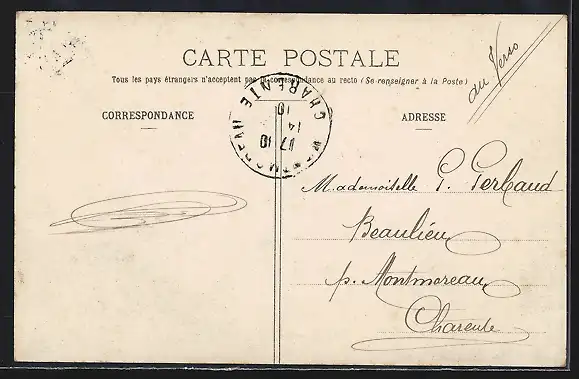 CARTE POSTALE
Tous les pays étrangers n'acceptent pas la correspondance au recto (Se renseigner à la Poste)
au Verso
CORRESPONDANCE
ADRESSE
MONTMOREAU CHARENTE
17 10
14
10
Mademoiselle G. Gerbaud
Beaulieu
p. Montmoreau
Charente